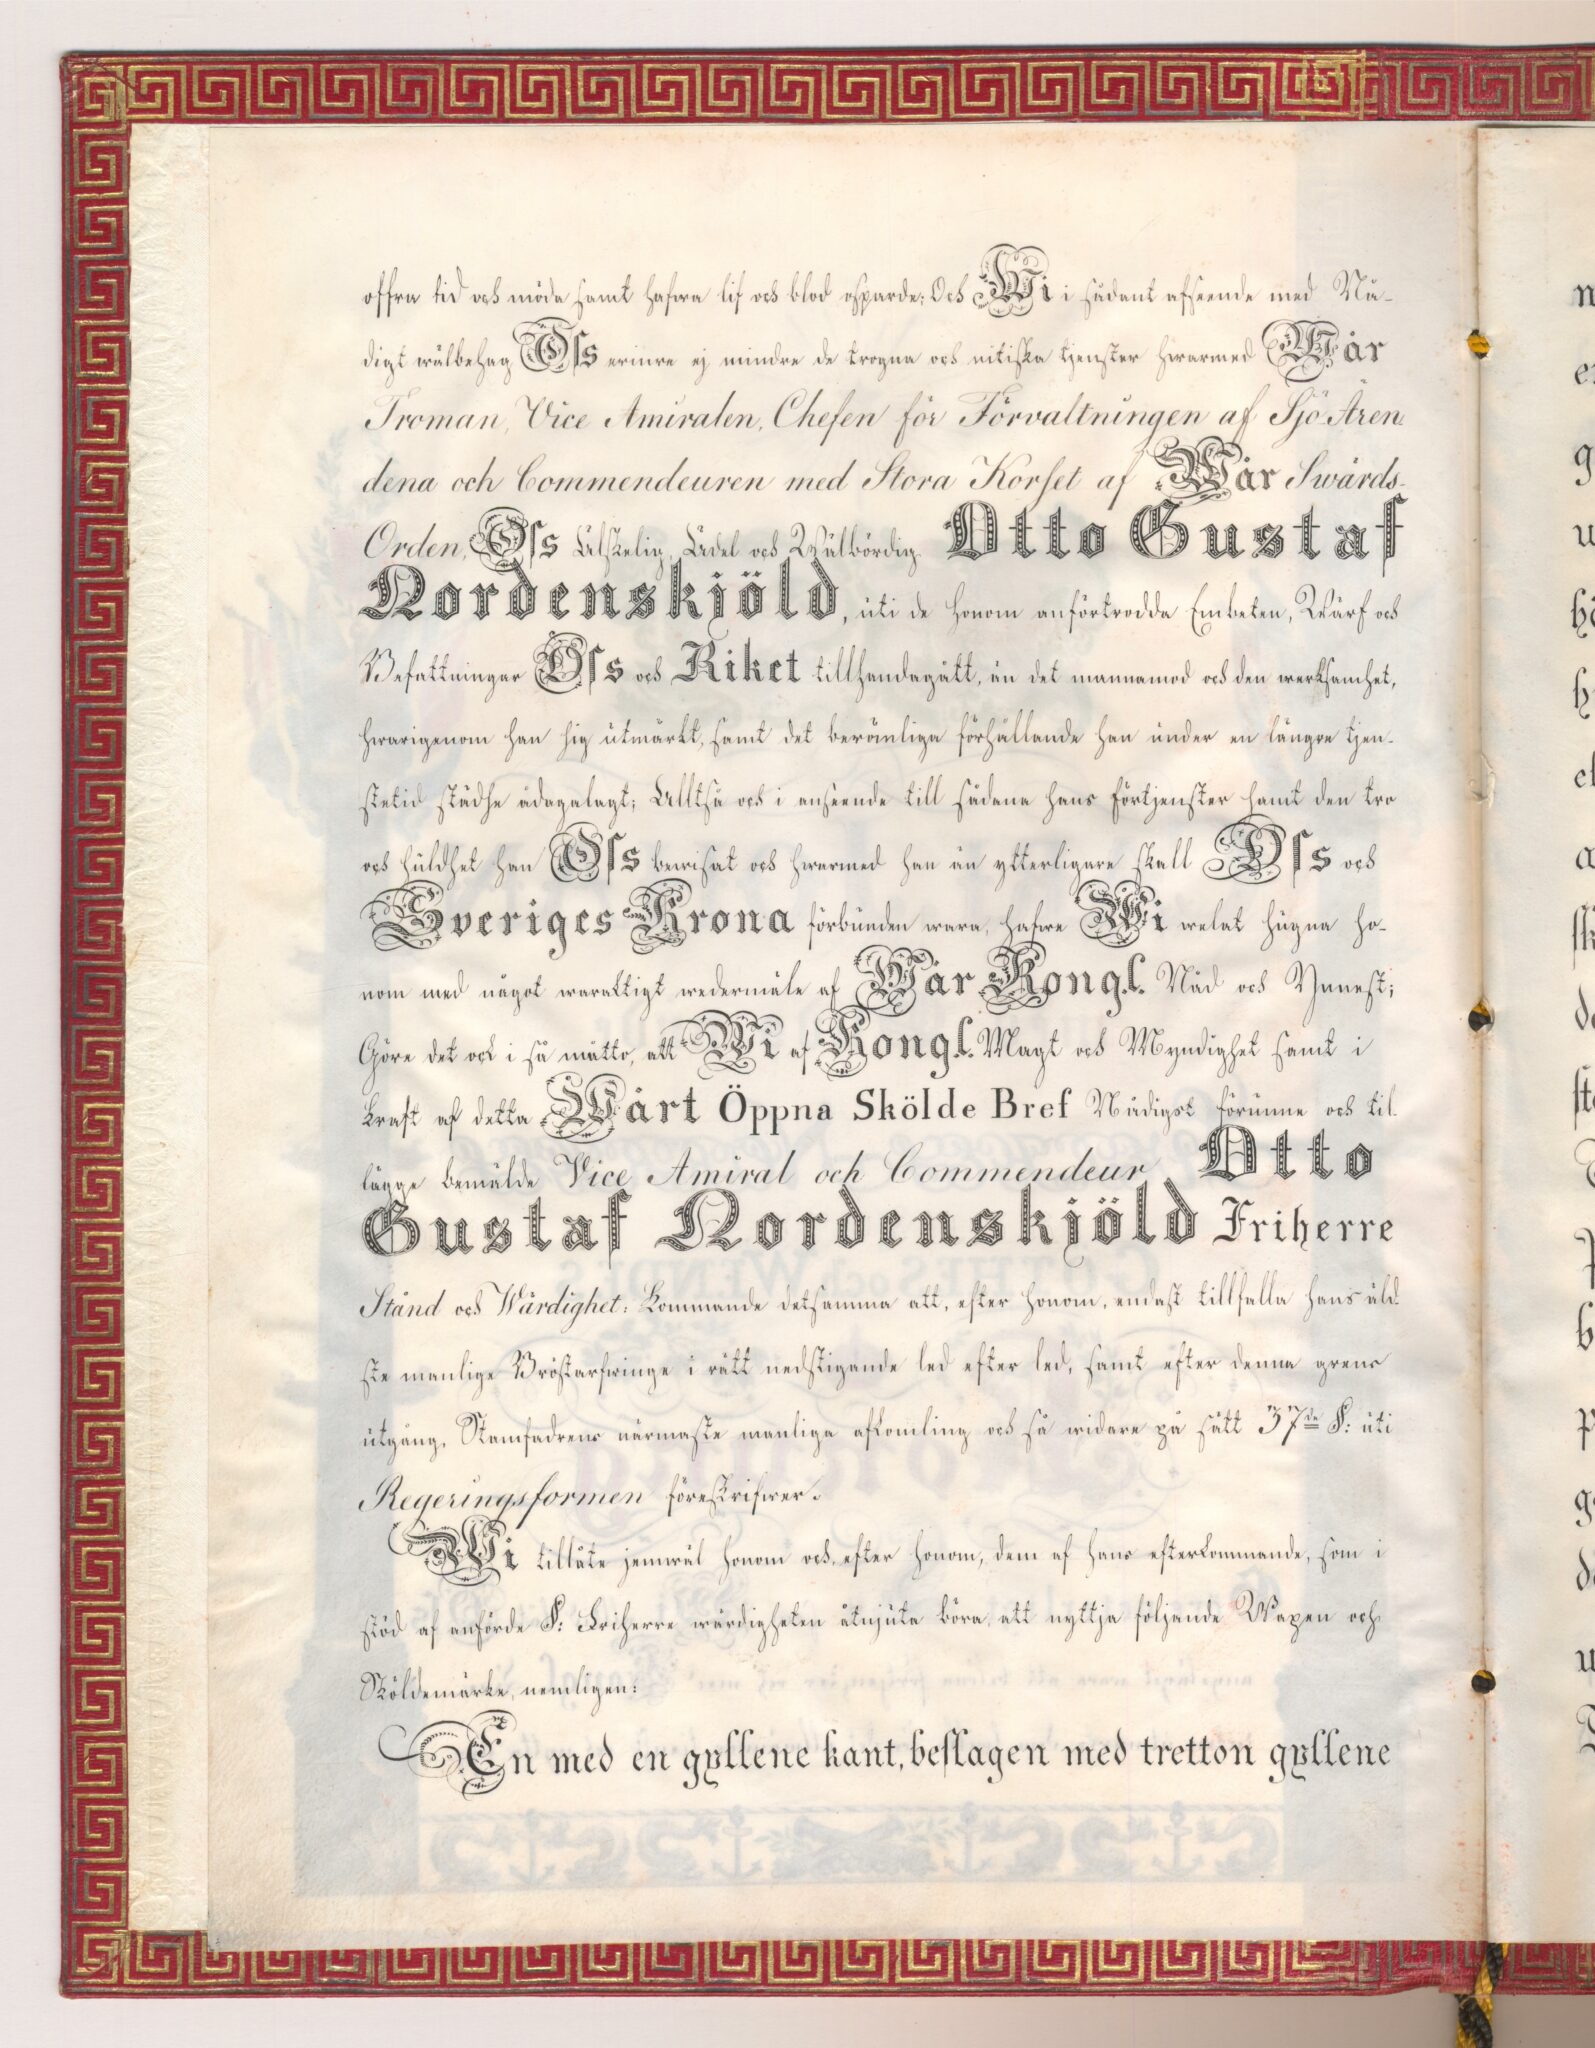 offra tid och möda samt hafwa lif och blod osparde; Och Wi i sådant afseende med Nå-
digt wälbehag Oſs erinre ej mindre de trogna och nitiska tjenster hwarmed Wår
Troman, Vice Amiralen, Chefen för Förvaltningen af Sjö Ären-
dena och Commendeuren med Stora Korset af Wår Swärds-
Orden, Oſs Älskelig, Ädel och Wälbördig Otto Gustaf
Nordenskjöld, uti de honom anförtrodda Embeten, Wärf och
Befattningar Oſs och Riket tillhandagått, än det mannamod och den werksamhet,
hwarigenom han sig utmärkt, samt det berömliga förhållande han under en längre tjen-
stetid städse ådagalagt; Alltså och i anseende till sådana hans förtjenster samt den tro
och huldhet han Oſs bewisat och hwarmed han än ytterligare skall Oſs och
Sveriges Krona förbunden wara, hafwe Wi welat hugna ho-
nom med något waraktigt wedermäle af Wår Kongl. Nåd och Ynnest;
Göre det ock i så måtto, att Wi af Kongl. Magt och Myndighet samt i
kraft af detta Wårt Öppna Skölde Bref Nådigst förunne och til-
lägge bemälde Vice Amiral och Commendeur Otto
Gustaf Nordenskjöld Friherre
Stånd och Wärdighet: kommande detsamma att, efter honom, endast tillfalla hans äld-
ste manlige Bröstarfwinge i rätt nedstigande led efter led, samt efter denna grens
utgång, Stamfadrens närmaste manliga afkomling och så widare på sätt 37de §: uti
Regeringsformen föreskrifwer.
Wi tillåte jemwäl honom och, efter honom, dem af hans efterkommande, som i
stöd af anförde §: Friherre wärdigheten åtnjuta böra, att nyttja följande Wapen och
Sköldemärke, nemligen:
En med en gyllene kant, beslagen med tretton gyllene